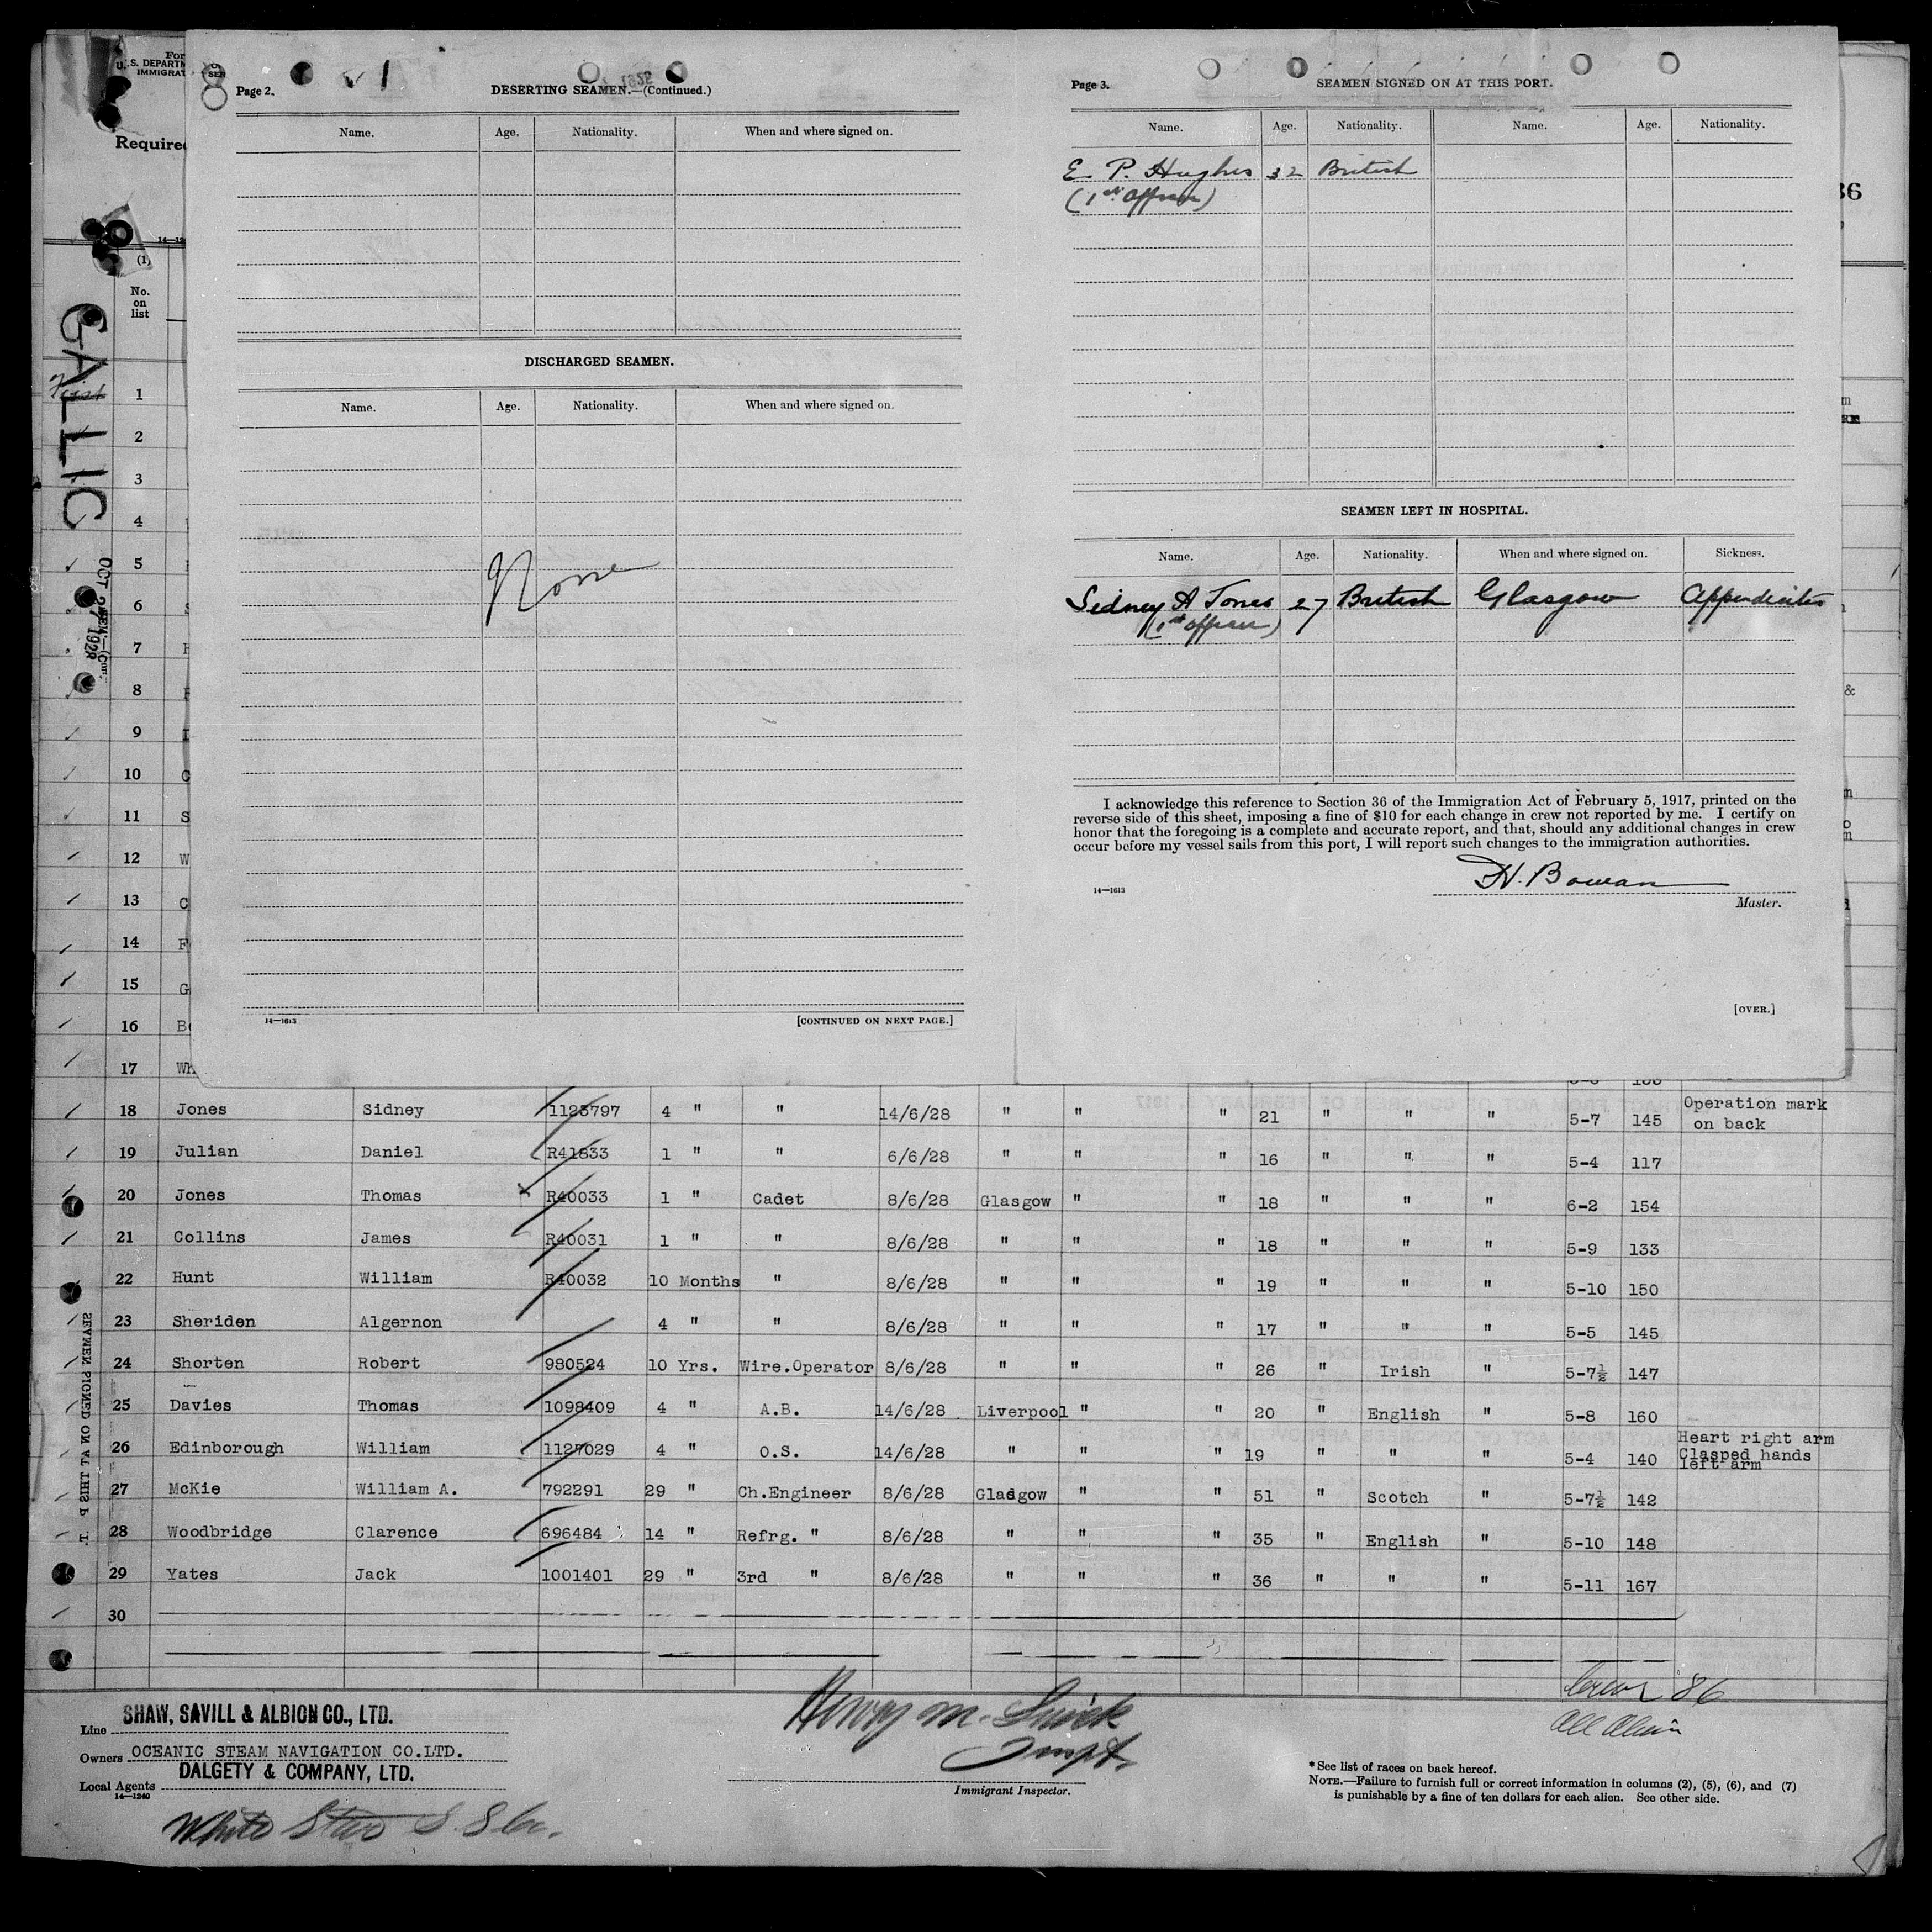 For
U. S. DEPARTM
IMMIGRAT
Required
(1)
No.
on
list
GALLIC
First
OCT 27 1928
SEAMEN SIGNED ON AT THIS P T.
Page 2.
1
DESERTING SEAMEN.—(Continued.)
Name. Age. Nationality. When and where signed on.
DISCHARGED SEAMEN.
Name. Age. Nationality. When and where signed on.
None
14—1613 [CONTINUED ON NEXT PAGE.]
Page 3. SEAMEN SIGNED ON AT THIS PORT.
Name. Age. Nationality. Name. Age. Nationality.
E. P. Hughes 32 British
(1st Officer)
SEAMEN LEFT IN HOSPITAL.
Name. Age. Nationality. When and where signed on. Sickness.
Sidney A Jones 27 British Glasgow Appendicites
(1st officer)
I acknowledge this reference to Section 36 of the Immigration Act of February 5, 1917, printed on the
reverse side of this sheet, imposing a fine of $10 for each change in crew not reported by me. I certify on
honor that the foregoing is a complete and accurate report, and that, should any additional changes in crew
occur before my vessel sails from this port, I will report such changes to the immigration authorities.
H. Bowan
14—1613
Master.
[OVER.]
36
1
2
3
4
5
6
7
8
9
10
11 S
12 W
13 C
14 F
15 G
16 B
17 Wh
18 Jones Sidney 1123797 4 " " 14/6/28 " " " 21 " " " 5-7 145 Operation mark
on back
19 Julian Daniel R41833 1 " " 6/6/28 " " " 16 " " " 5-4 117
20 Jones Thomas R40033 1 " Cadet 8/6/28 Glasgow " " 18 " " " 6-2 154
21 Collins James R40031 1 " " 8/6/28 " " " 18 " " " 5-9 133
22 Hunt William R40032 10 Months " 8/6/28 " " " 19 " " " 5-10 150
23 Sheriden Algernon 4 " " 8/6/28 " " " 17 " " " 5-5 145
24 Shorten Robert 980524 10 Yrs. Wire.Operator 8/6/28 " " " 26 " Irish " 5-7½ 147
25 Davies Thomas 1098409 4 " A.B. 14/6/28 Liverpool " " 20 " English " 5-8 160
26 Edinborough William 1127029 4 " O.S. 14/6/28 " " " 19 " " " 5-4 140 Heart right arm
Clasped hands
left arm
27 McKie William A. 792291 29 " Ch.Engineer 8/6/28 Glasgow " " 51 " Scotch " 5-7½ 142
28 Woodbridge Clarence 696484 14 " Refrg. " 8/6/28 " " " 35 " English " 5-10 148
29 Yates Jack 1001401 29 " 3rd " 8/6/28 " " " 36 " " " 5-11 167
30
Crew 86
All Alien
Line SHAW, SAVILL & ALBION CO., LTD.
Owners OCEANIC STEAM NAVIGATION CO.LTD.
Local Agents DALGETY & COMPANY, LTD.
14—1240
White Star S.S Co.
Henry M.
Inspt.
Immigrant Inspector.
*See list of races on back hereof.
NOTE.—Failure to furnish full or correct information in columns (2), (5), (6), and (7)
is punishable by a fine of ten dollars for each alien. See other side.